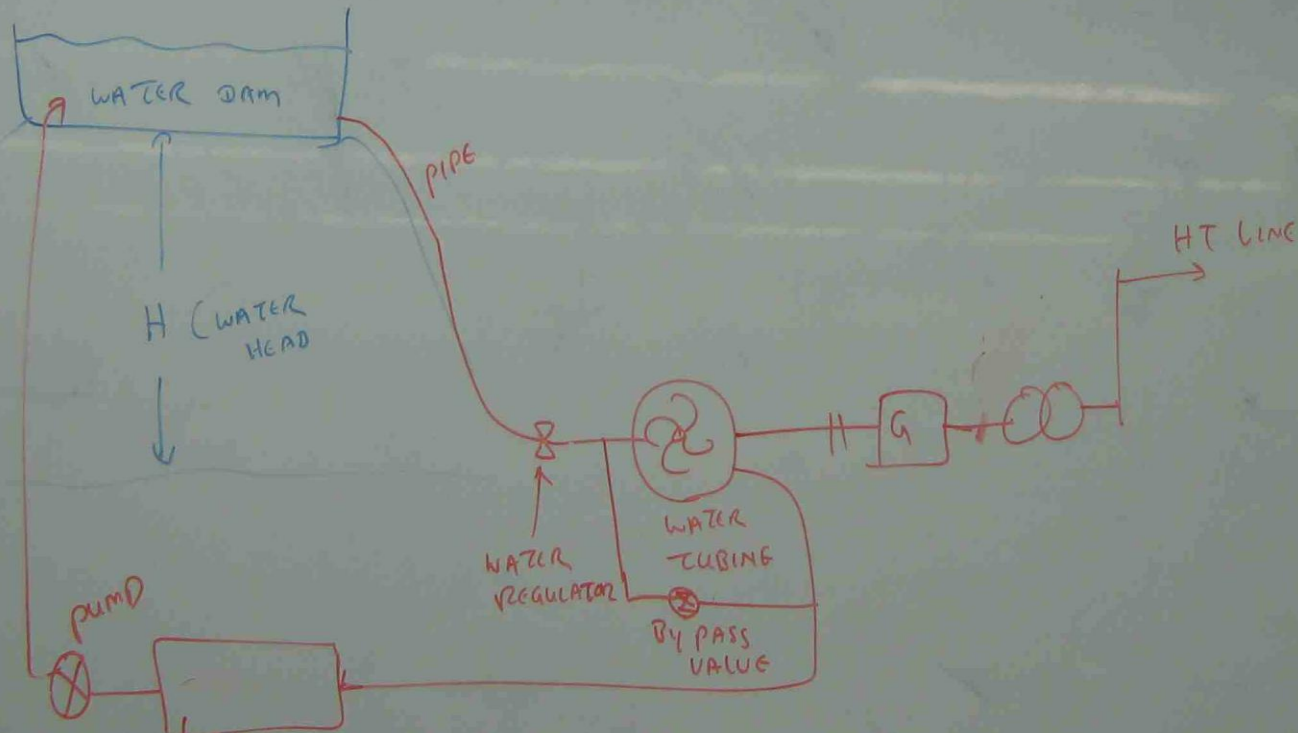 WATER DAM
PIPE
HT LINE
H (WATER
HEAD
G
WATER
TUBING
WATER
REGULATOR
BY PASS
VALUE
PUMP